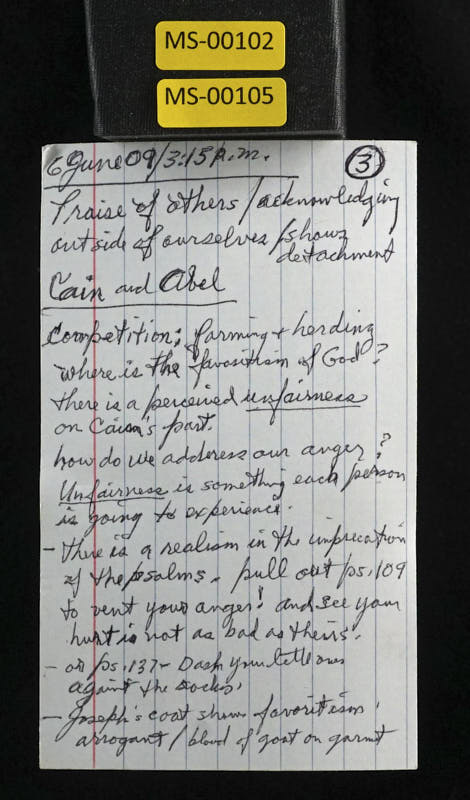 MS-00102
MS-00105
6 June 09/3:15 p.m.
3
Praise of others/acknowledging
outside of ourselves/shows
detachment
Cain and Abel
Competition: farming + herding
where is the favoritism of God?
there is a perceived unfairness
on Cain's part.
how do we address our anger?
Unfairness is something each person
is going to experience.
- there is a realism in the imprecation
of the psalms. pull out ps. 109
to vent your anger! and see your
hurt is not as bad as theirs.
- or ps. 137- Dash your little ones
against the rocks.
- Joseph's coat shows favoritism,
arrogant/blood of goat on garmt